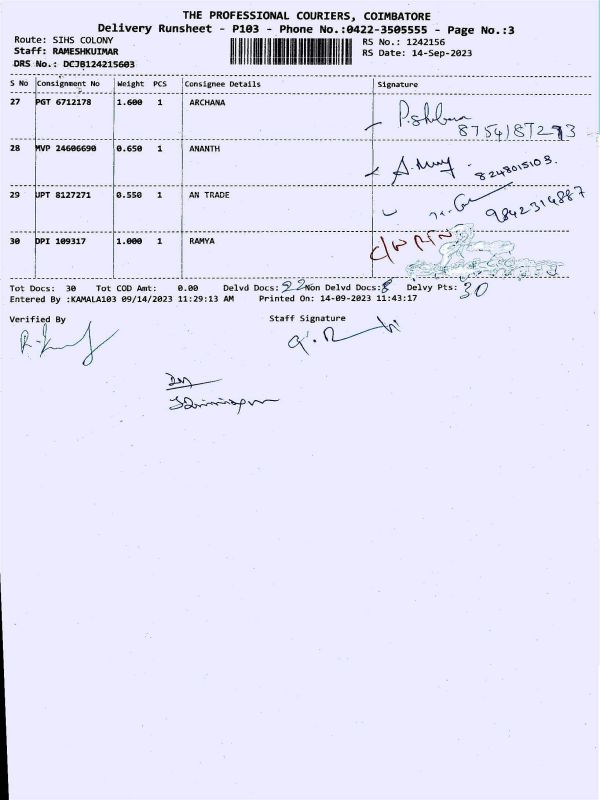 THE PROFESSIONAL COURIERS, COIMBATORE
Delivery Runsheet - P103 - Phone No.:0422-3505555 - Page No.:3
Route: SIHS COLONY
RS No.: 1242156
Staff: RAMESHKUIMAR
RS Date: 14-Sep-2023
DRS No.: DCJB124215603
S No Consignment No Weight PCS Consignee Details Signature
27 PGT 6712178 1.600 1 ARCHANA
28 MVP 24606690 0.650 1 ANANTH
8248015108.
29 JPT 8127271 0.550 1 AN TRADE
9842314887
30 DPI 109317 1.000 1 RAMYA
Tot Docs: 30 Tot COD Amt: 0.00 Delvd Docs: 22 Non Delvd Docs: 8 Delvy Pts: 30
Entered By :KAMALA103 09/14/2023 11:29:13 AM Printed On: 14-09-2023 11:43:17
Verified By Staff Signature